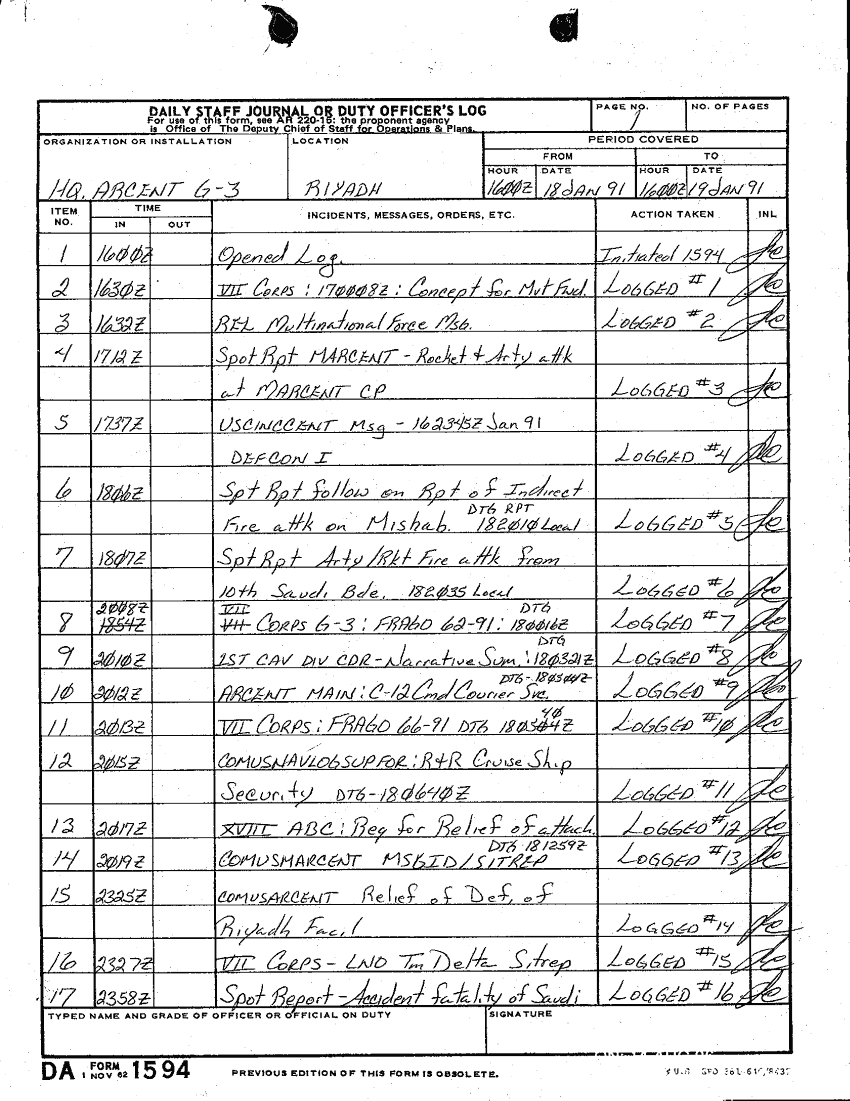 DAILY STAFF JOURNAL OR DUTY OFFICER'S LOG
For use of this form, see AR 220-15: the proponent agency
is Office of The Deputy Chief of Staff for Operations & Plans.
PAGE NO. 1
NO. OF PAGES
ORGANIZATION OR INSTALLATION
HQ. ARCENT G-3
LOCATION
RIYADH
PERIOD COVERED
FROM TO
HOUR DATE HOUR DATE
1600Z 18 JAN 91 1600Z 19 JAN 91
ITEM NO. TIME IN OUT INCIDENTS, MESSAGES, ORDERS, ETC. ACTION TAKEN INL
1 1600Z Opened Log. Initiated 1594
2 1630Z VII CORPS : 170008Z : Concept for Mvt Fwd. LOGGED #1
3 1632Z REL Multinational Force Msg. LOGGED #2
4 1712Z Spot Rpt MARCENT - Rocket & Arty attk
at MARCENT CP LOGGED #3
5 1737Z USCINCCENT Msg - 162345Z Jan 91
DEFCON I LOGGED #4
6 1806Z Spt Rpt follow on Rpt of Indirect
Fire attk on Mishab. DTG RPT 182010 Local LOGGED #5
7 1807Z Spt Rpt Arty/Rkt Fire attk from
10th Saudi Bde. 182035 Local LOGGED #6
8 2008Z 1854Z VII VII CORPS G-3 : FRAGO 62-91 : DTG 180016Z LOGGED #7
9 2010Z 1ST CAV DIV CDR - Narrative Sum. : DTG 180321Z LOGGED #8
10 2012Z ARCENT MAIN : C-12 Cmd Courier Svc. DTG - 180504Z LOGGED #9
11 2013Z VII CORPS : FRAGO 66-91 DTG 180504Z 40 LOGGED #10
12 2015Z COMUSNAVLOGSUPFOR : R&R Cruise Ship
Security DTG - 180640Z LOGGED #11
13 2017Z XVIII ABC : Req for Relief of attach. LOGGED #12
14 2019Z COMUSMARCENT MSGID/SITREP DTG 181259Z LOGGED #13
15 2325Z COMUSARCENT Relief of Def. of
Riyadh Facil LOGGED #14
16 2327Z VII CORPS - LNO Tm Delta Sitrep LOGGED #15
17 2358Z Spot Report - Accident fatality of Saudi LOGGED #16
TYPED NAME AND GRADE OF OFFICER OR OFFICIAL ON DUTY
SIGNATURE
DA FORM 1 NOV 62 1594
PREVIOUS EDITION OF THIS FORM IS OBSOLETE.